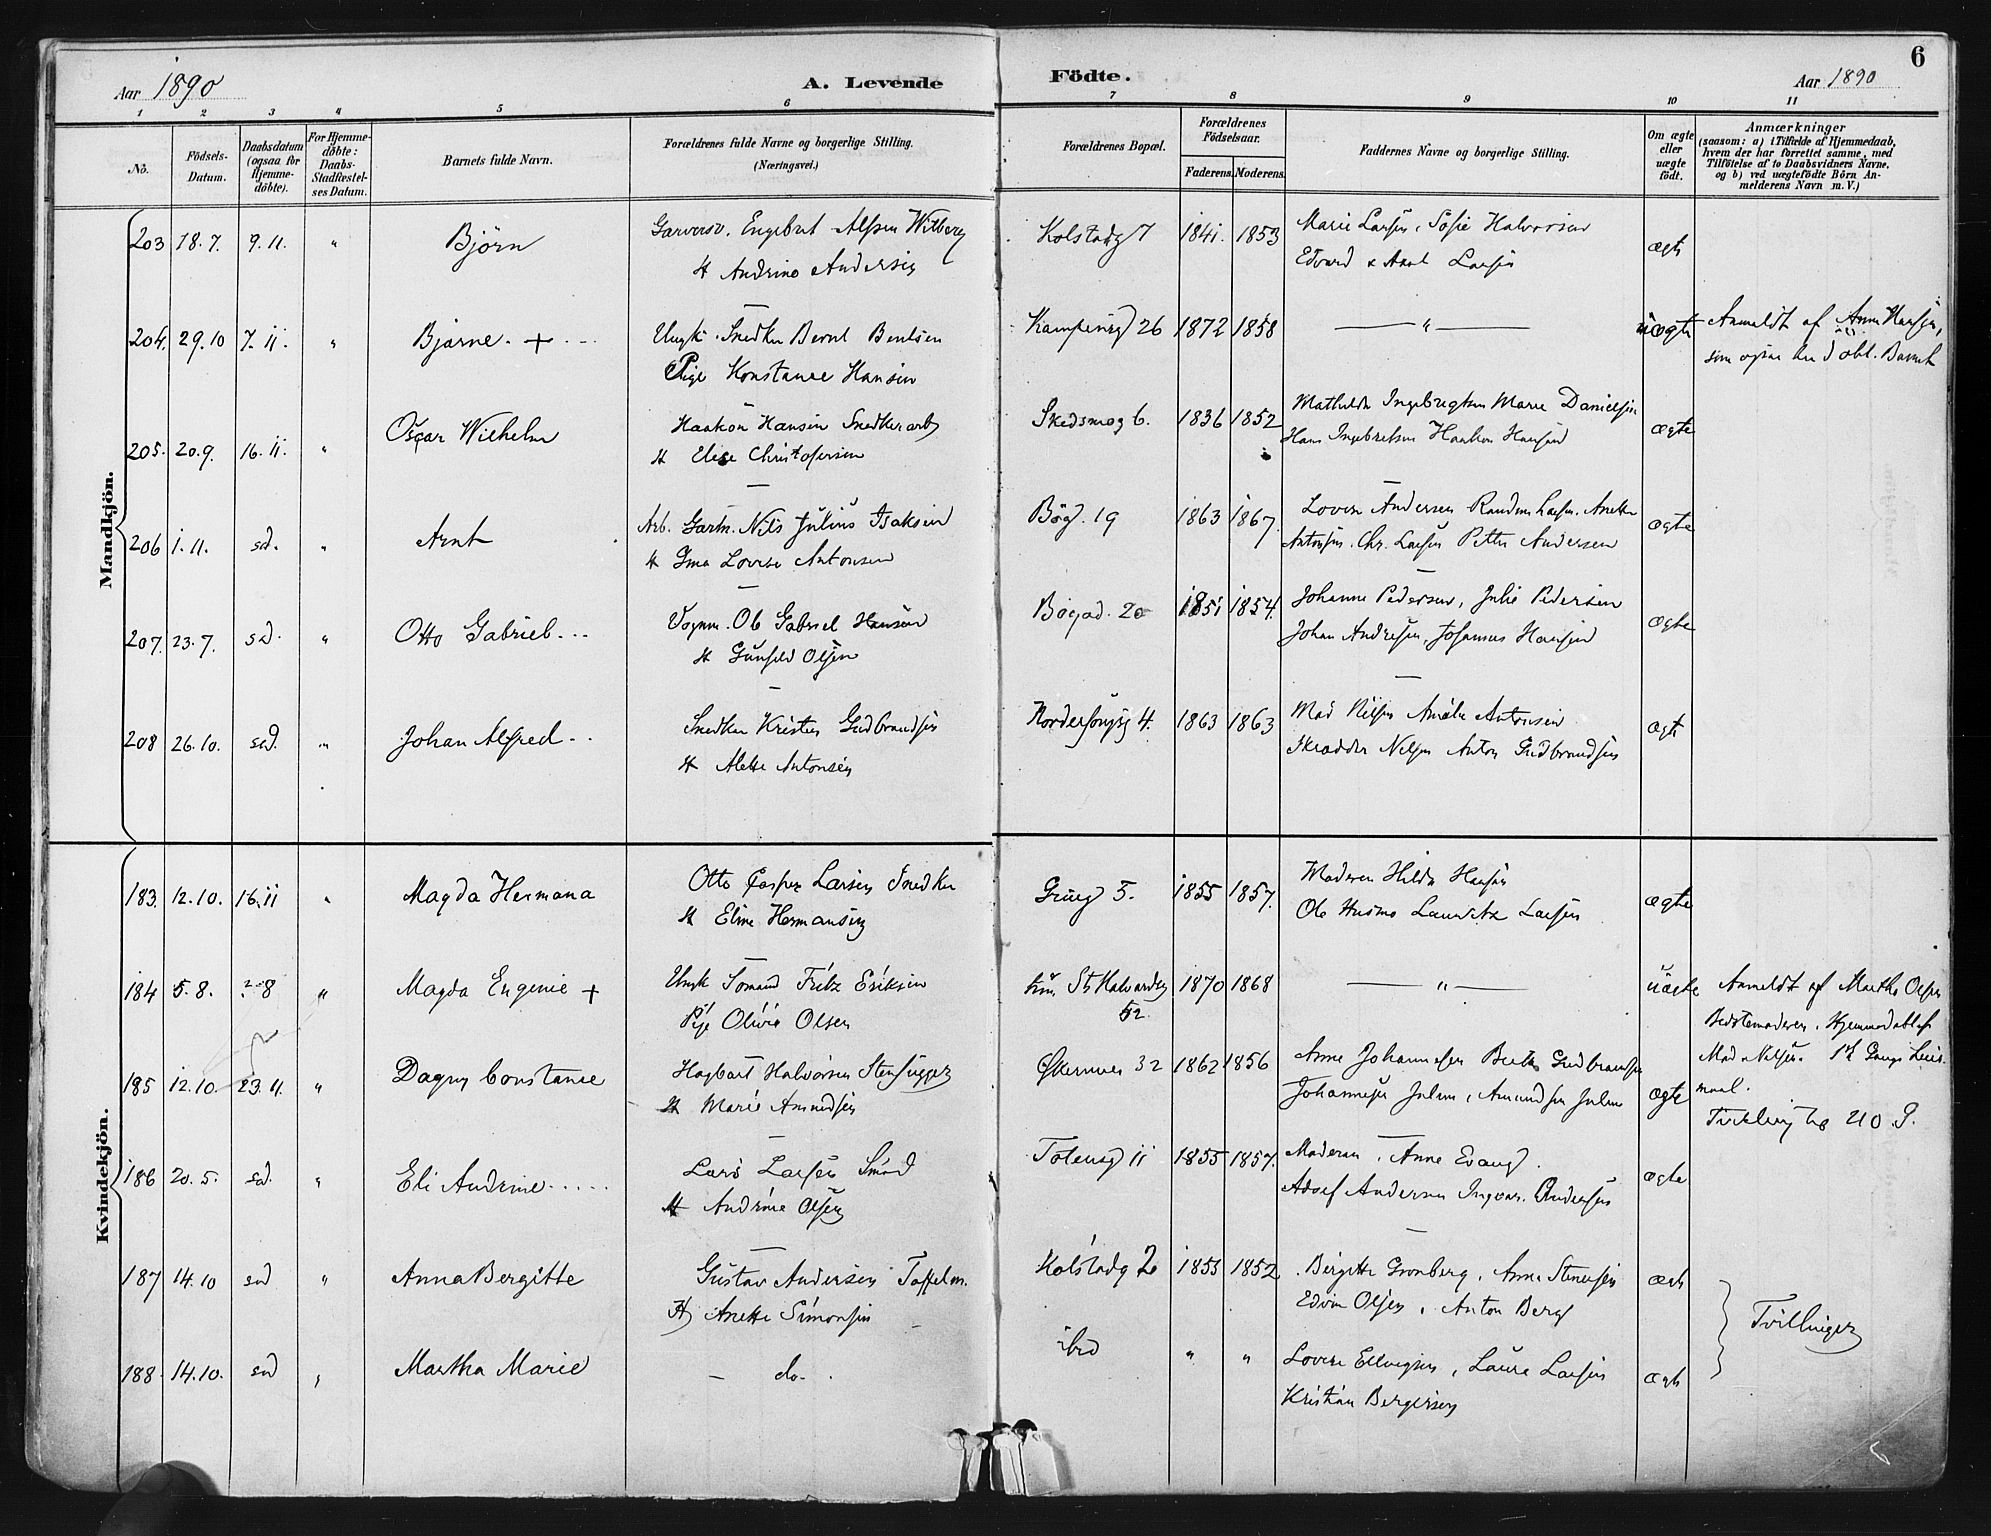 6
Aar 1890
A. Levende Födte.
Aar 1890
1 2 3 4 5 6 7 8 9 10 11
No.
Födsels-Datum.
Daabsdatum (ogsaa for Hjemme-döbte).
For Hjemme-döbte: Daabs-Stadfestel-ses Datum.
Barnets fulde Navn.
Forældrenes fulde Navne og borgerlige Stilling.
(Næringsvei.)
Forældrenes Bopæl.
Forældrenes Födselsaar.
Faderens. Moderens.
Faddernes Navne og borgerlige Stilling.
Om ægte eller uægte födt.
Anmærkninger
(saasom: a) i Tilfælde af Hjemmedaab,
hvem der har forrettet samme, med
Tilföielse af to Daabsvidners Navne,
og b) ved uægtefödte Börn An-
melderens Navn m. V.)
Mandkjön.
203 18.7. 9.11. " Björn
Engebret Alfsen Witberg
H Andrine Andersen
Kolstadg 7 1841. 1853
Marie Larsen, Sofie Halvorsen
Edvard & Axel Larsen
ægte
204. 29.10 7.11. " Bjarne. +
Ungk. Snedker Bernt Bentsen
Pige Konstance Hansen
Kampensg 26 1872 1858
— " —
uægte
Anmeldt af Anna Hansen,
som ogsaa har döbt. Barnet
205. 20.9. 16.11. " Oscar Wilhelm
Haakon Hansen Snedkerarb
H Elise Christofersen
Skedsmog 6. 1836 1852
Mathilde Ingebregtsen Marie Danielsen
Hans Ingebretsen Haakon Hansen
ægte
206 1.11. sd. " Arnt
Arb. Gartn. Nils Julius Isaksen
H Ima Lovise Antonsen
Bög. 19 1863 1867.
Lovise Andersen Larsen. Anette
Antonsen. Chr. Larsen Petter Andersen
ægte
207. 23.7. sd. " Otto Gabriel
Vognm. Ole Gabriel Hansen
H Gunhild Olsen
Bögad. 20 1851 1854.
Johanne Pedersen, Julie Pedersen
Johan Andresen, Johannes Hansen
ægte
208 26.10. sd. " Johan Alfred
Snedker Kristen Gudbrandsen
H Alette Antonsen
4. 1863 1863
Mad Nilsen Amalie Antonsen
Skrædder Nelsen Anton Gudbrandsen
ægte
Kvindekjön.
183. 12.10. 16.11 " Magda Hermana
Otto Casper Larsen Snedker
H Eline Hermansen
Grüng 5. 1855 1857.
Moderen Hilda Hansen
Ole Husmo Lauritz Larsen
ægte
184 5.8. 8 " Magda Eugenie +
Ungk Sömand Fritz Eriksen
Pige Olivia Olsen
St Halvardsg
52. 1870 1868
— " —
uægte
Anmeldt af Martha Olsen
Bedstemoderen. Hjemmedöbt af
Mad. Nilsen.
185 12.10. 23.11. " Dagny Constance
Hagbart Halvorsen Stenhugger
H Marie Amundsen
Økernvei 32 1862 1856
Anne Johannesen Berthe Gudbrandsen
Johannesen Julius, Amundsen Julius
ægte
186 20.5. sd. " Eli Andrine
Lars Larsen Smed
H Andrine Olsen
Totensg 11 1855 1857.
Moderen, Anne Evang.
Adolf Andersen Ingvar. Andersen
ægte
187 14.10 sd " Anna Bergitte
Gustav Andersen Taffelm.
H Anette Simonsen
Kolstadg 2 1853 1852
Birgitte Gronberg, Anna Stenersen
Edvin Olsen, Anton Berg
ægte
Tvillinger
188. 14.10. sd " Martha Marie
— do.
ibid " "
Lovise Ellingsen, Laura Larsen
Kristian Bergersen
ægte